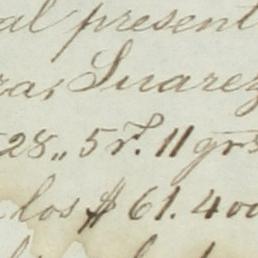 al present
za, Suarez
28,, 5 r.s 11 grs
los $ 61.400